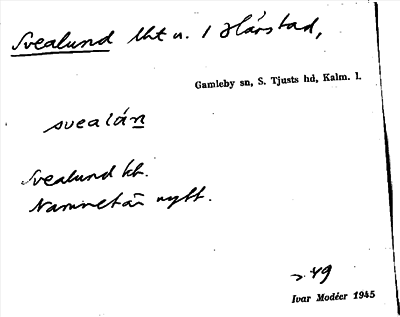 Svealund lht u. 1 Hårstad,
Gamleby sn, S. Tjusts hd, Kalm. l.
svealán
Svealund kk.
Namnet är nytt.
49
Ivar Modéer 1945